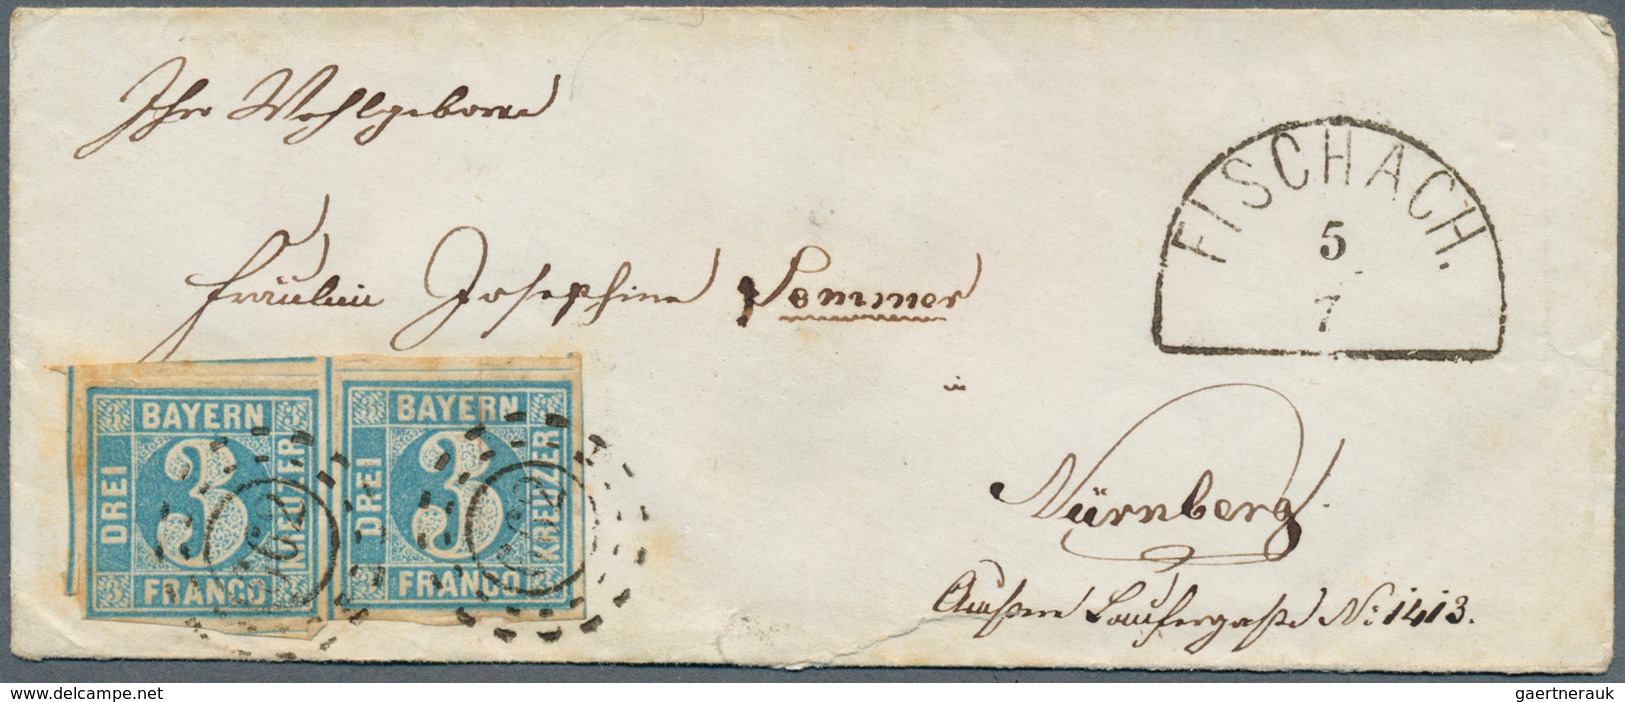 Ihro Wohlgeboren
FISCHACH.
5
7
Fräulein Josephine Sommer
in
Nürnberg.
Äußere Laufergaße N: 1413.
BAYERN
3
DREI
KREUZER
FRANCO
3 3 3
BAYERN
3
DREI
KREUZER
FRANCO
3 3 3
www.delcampe.net
gaertnerauk